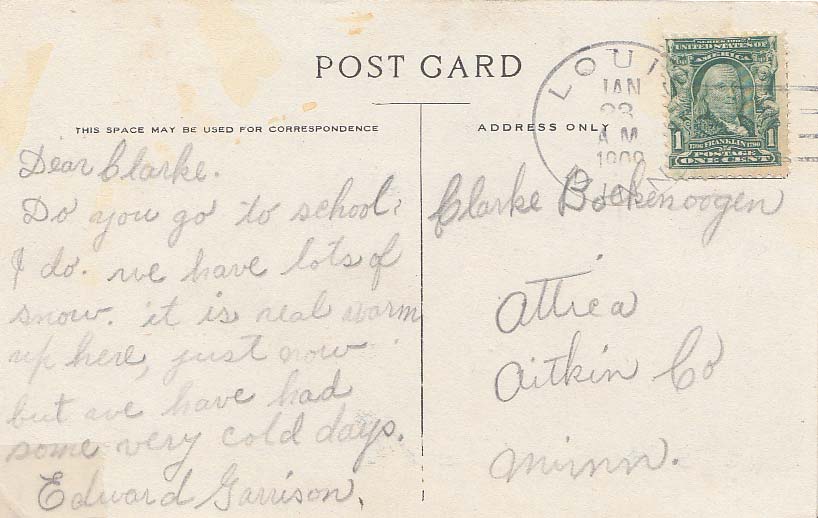 POST CARD
THIS SPACE MAY BE USED FOR CORRESPONDENCE
Dear Clarke.
Do you go to school?
I do. we have lots of
snow. it is real warm
up here, just now
but we have had
some very cold days.
Edward Garrison,
ADDRESS ONLY
Clarke Boekenoogen
Attica
Aitkin Co
Minn.
LOUI
JAN
23
A M
1909
SERIES 1902
UNITED STATES OF
AMERICA
1 1
1706 FRANKLIN 1790
POSTAGE
ONE CENT